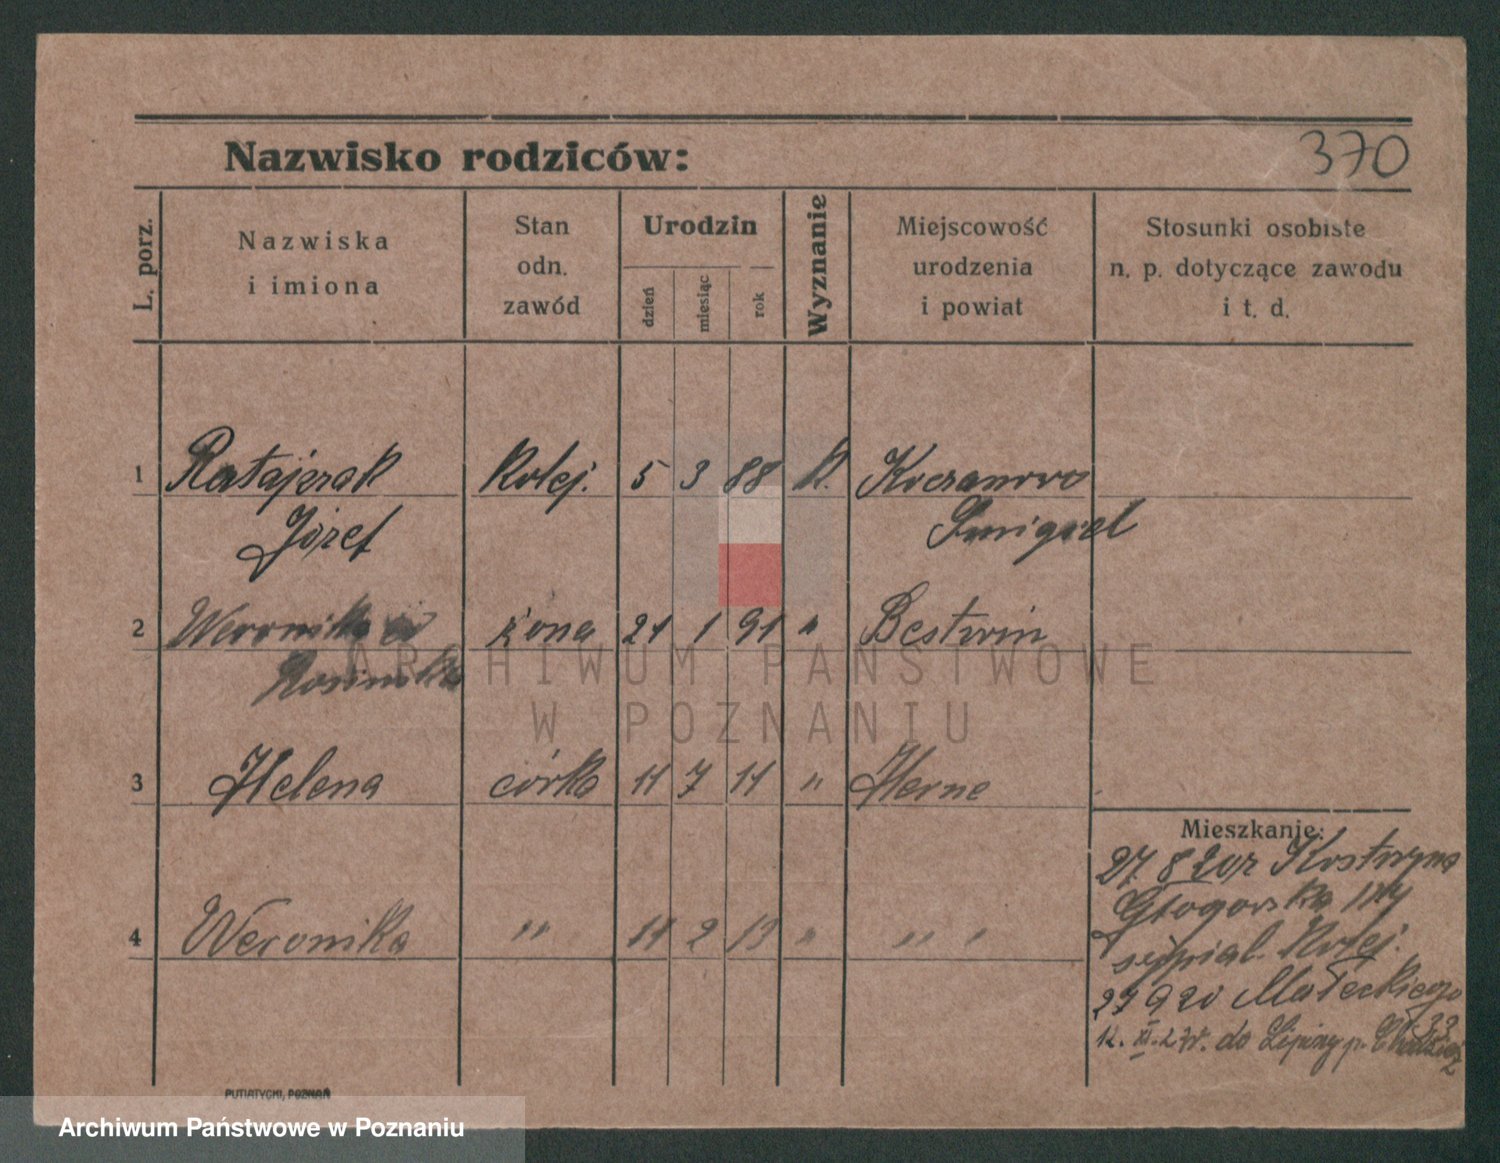 370
Nazwisko rodziców:
L. porz.
Nazwiska
i imiona
Stan
odn.
zawód
Urodzin
dzień
miesiąc
rok
Wyznanie
Miejscowość
urodzenia
i powiat
Stosunki osobiste
n. p. dotyczące zawodu
i t. d.
1 Ratajczak Kolej. 5 3 88 k.
Józef Śmigiel
2 Weronika żona 21 1 91 " Bestwin
3 Helena córka 11 7 11 " Herne
4 Weronika " 11 2 13 " " "
Mieszkanie:
27 8 20 z Kostrzyna
Głogorska
sypial. Kolej.
27 9 20 Małeckiego
33
12. XI. 27r. do Lipiny p.
PUTIATYCKI, POZNAŃ
ARCHIWUM PAŃSTWOWE
W POZNANIU
Archiwum Państwowe w Poznaniu